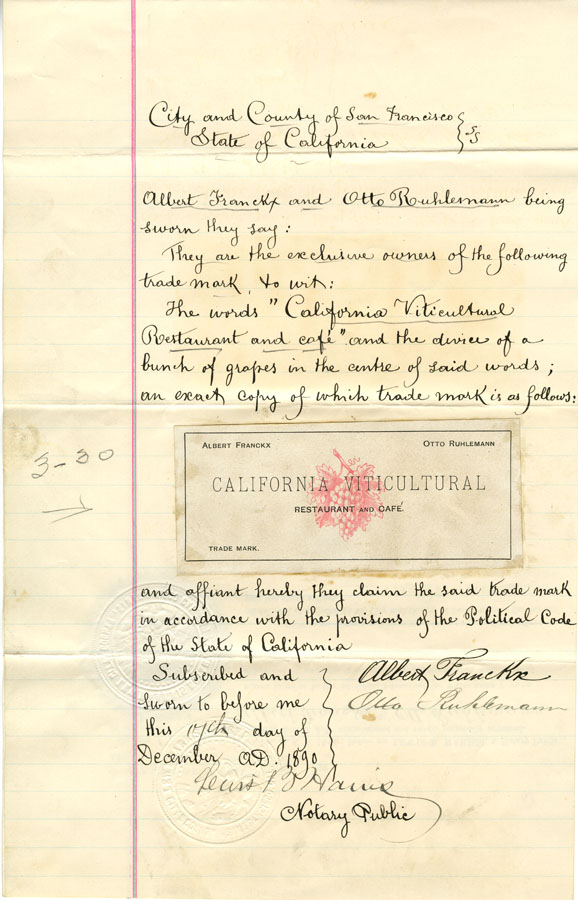 City and County of San Francisco } SS
State of California
Albert Franckx and Otto Ruhlemann being
sworn they say:
They are the exclusive owners of the following
trade mark, to wit:
The words "California Viticultural
Restaurant and café" and the divice of a
bunch of grapes in the centre of said words;
an exact copy of which trade mark is as follows:
ALBERT FRANCKX OTTO RUHLEMANN
CALIFORNIA VITICULTURAL
RESTAURANT AND CAFÉ.
TRADE MARK.
3-30
and affiant hereby they claim the said trade mark
in accordance with the provisions of the Political Code
of the State of California
Subscribed and
sworn to before me
this day of
December A.D. 1890
Albert Franckx
Otto Ruhlemann
Harris
Notary Public